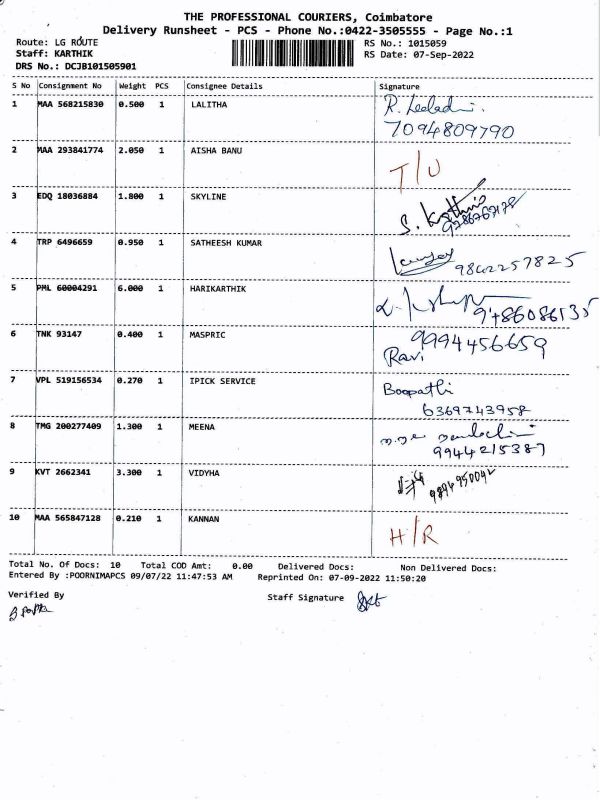 THE PROFESSIONAL COURIERS, Coimbatore
Delivery Runsheet - PCS - Phone No.:0422-3505555 - Page No.:1
Route: LG ROUTE
Staff: KARTHIK
DRS No.: DCJB101505901
RS No.: 1015059
RS Date: 07-Sep-2022
S No Consignment No Weight PCS Consignee Details Signature
1 MAA 568215830 0.500 1 LALITHA
7094809790
2 MAA 293841774 2.050 1 AISHA BANU T/U
3 EDQ 18036884 1.800 1 SKYLINE
4 TRP 6496659 0.950 1 SATHEESH KUMAR
9842257825
5 PML 60004291 6.000 1 HARIKARTHIK
9486086135
6 TNK 93147 0.400 1 MASPRIC 9994456659
Ravi
7 VPL 519156534 0.270 1 IPICK SERVICE Boopathi
6369743958
8 TMG 200277409 1.300 1 MEENA
9944215387
9 KVT 2662341 3.300 1 VIDYHA
9894950042
10 MAA 565847128 0.210 1 KANNAN H/R
Total No. Of Docs: 10 Total COD Amt: 0.00 Delivered Docs: Non Delivered Docs:
Entered By :POORNIMAPCS 09/07/22 11:47:53 AM Reprinted On: 07-09-2022 11:50:20
Verified By Staff Signature